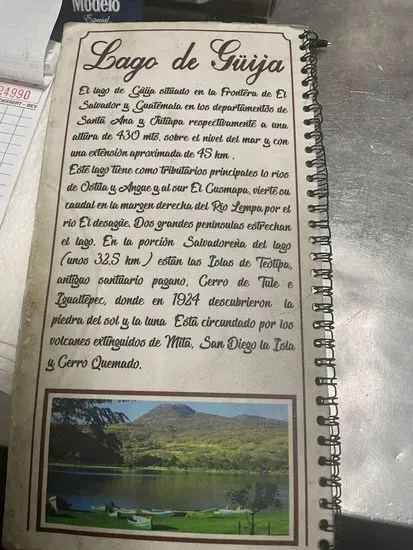 Modelo
Especial
24990
DESSERT - BEV
Lago de Güija
El lago de Güija situado en la Frontera de El
Salvador y Guatemala en los departamentos de
Santa Ana y Jutiapa respectivamente a una
altura de 430 mts. sobre el nivel del mar y con
una extensión aproximada de 45 km .
Este lago tiene como tributarios principales lo rios
de Ostúa y Angue y al sur El Cusmapa, vierte su
caudal en la margen derecha del Río Lempa por el
rio El desagüe, Dos grandes peninsulas estrechan
el lago. En la porción Salvadoreña del lago
(unos 32.5 km ) están las Islas de Teotipa,
antiguo santuario pagano, Cerro de Tule e
Igualtepec, donde en 1924 descubrieron la
piedra del sol y la luna Está circundado por los
volcanes extinguidos de Mita, San Diego la Isla
y Cerro Quemado.